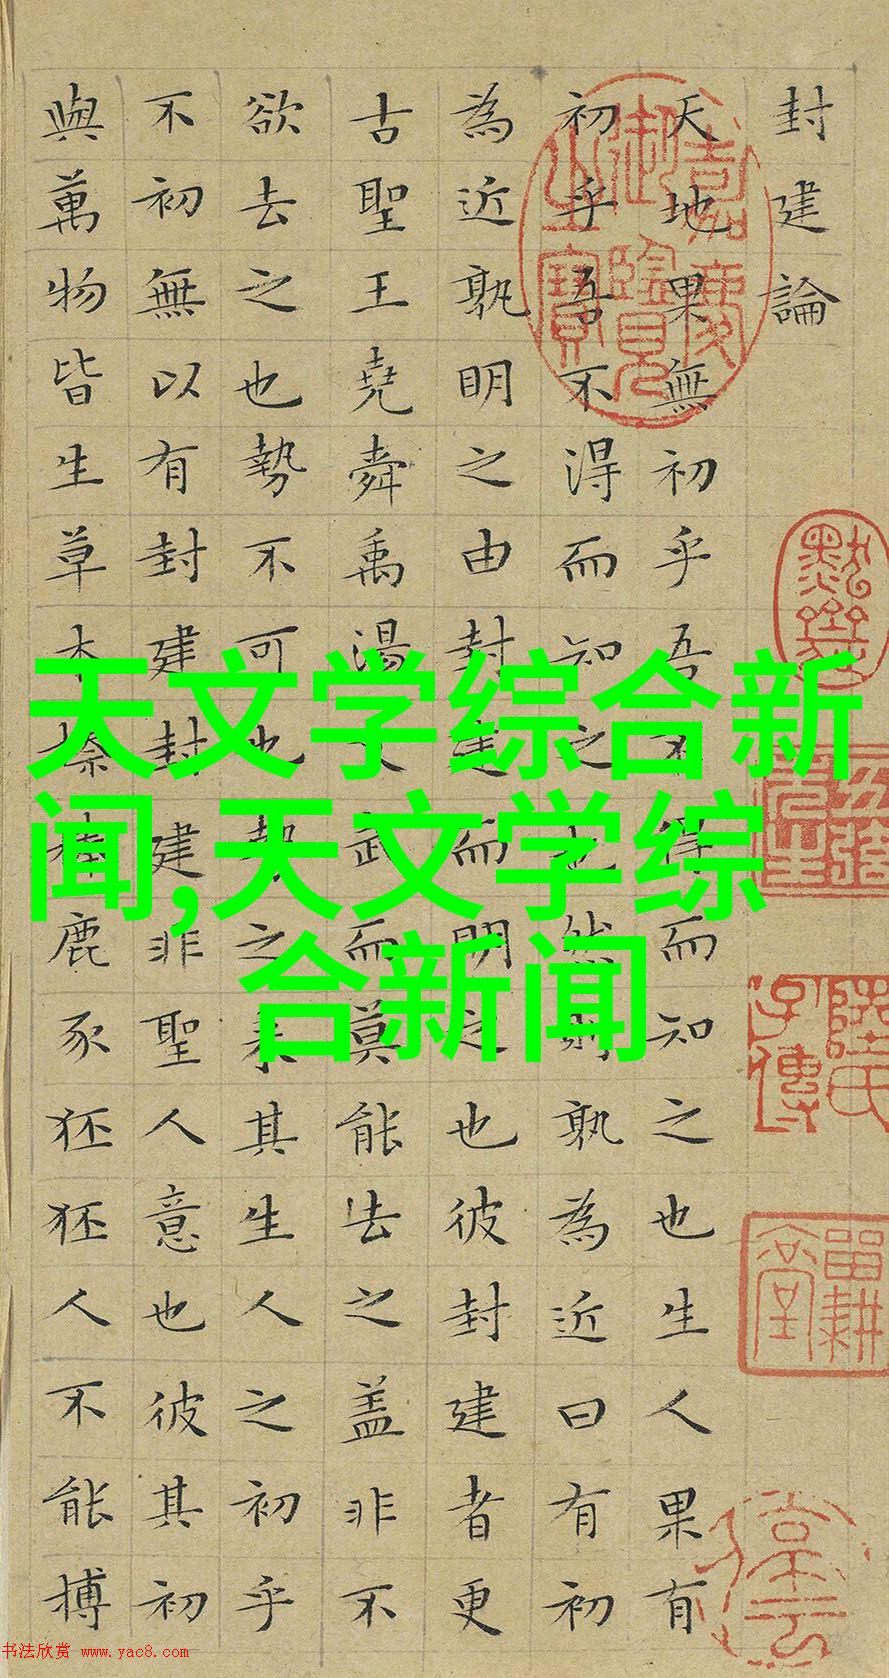 封建論
天地果無初乎吾不得而知之也生人果有
初乎吾不得而知之也然則孰為近曰有初
為近孰明之由封建而明之也彼封建者更
古聖王堯舜禹湯文武而莫能去之蓋非不
欲去之也勢不可也勢之來其生人之初乎
不初無以有封建封建非聖人意也彼其初
與萬物皆生草木榛榛鹿豕狉狉人不能搏
嘉慶御覽之寶
天文学综合新
闻,天文学综
合新闻
书法欣赏 www.yac8.com